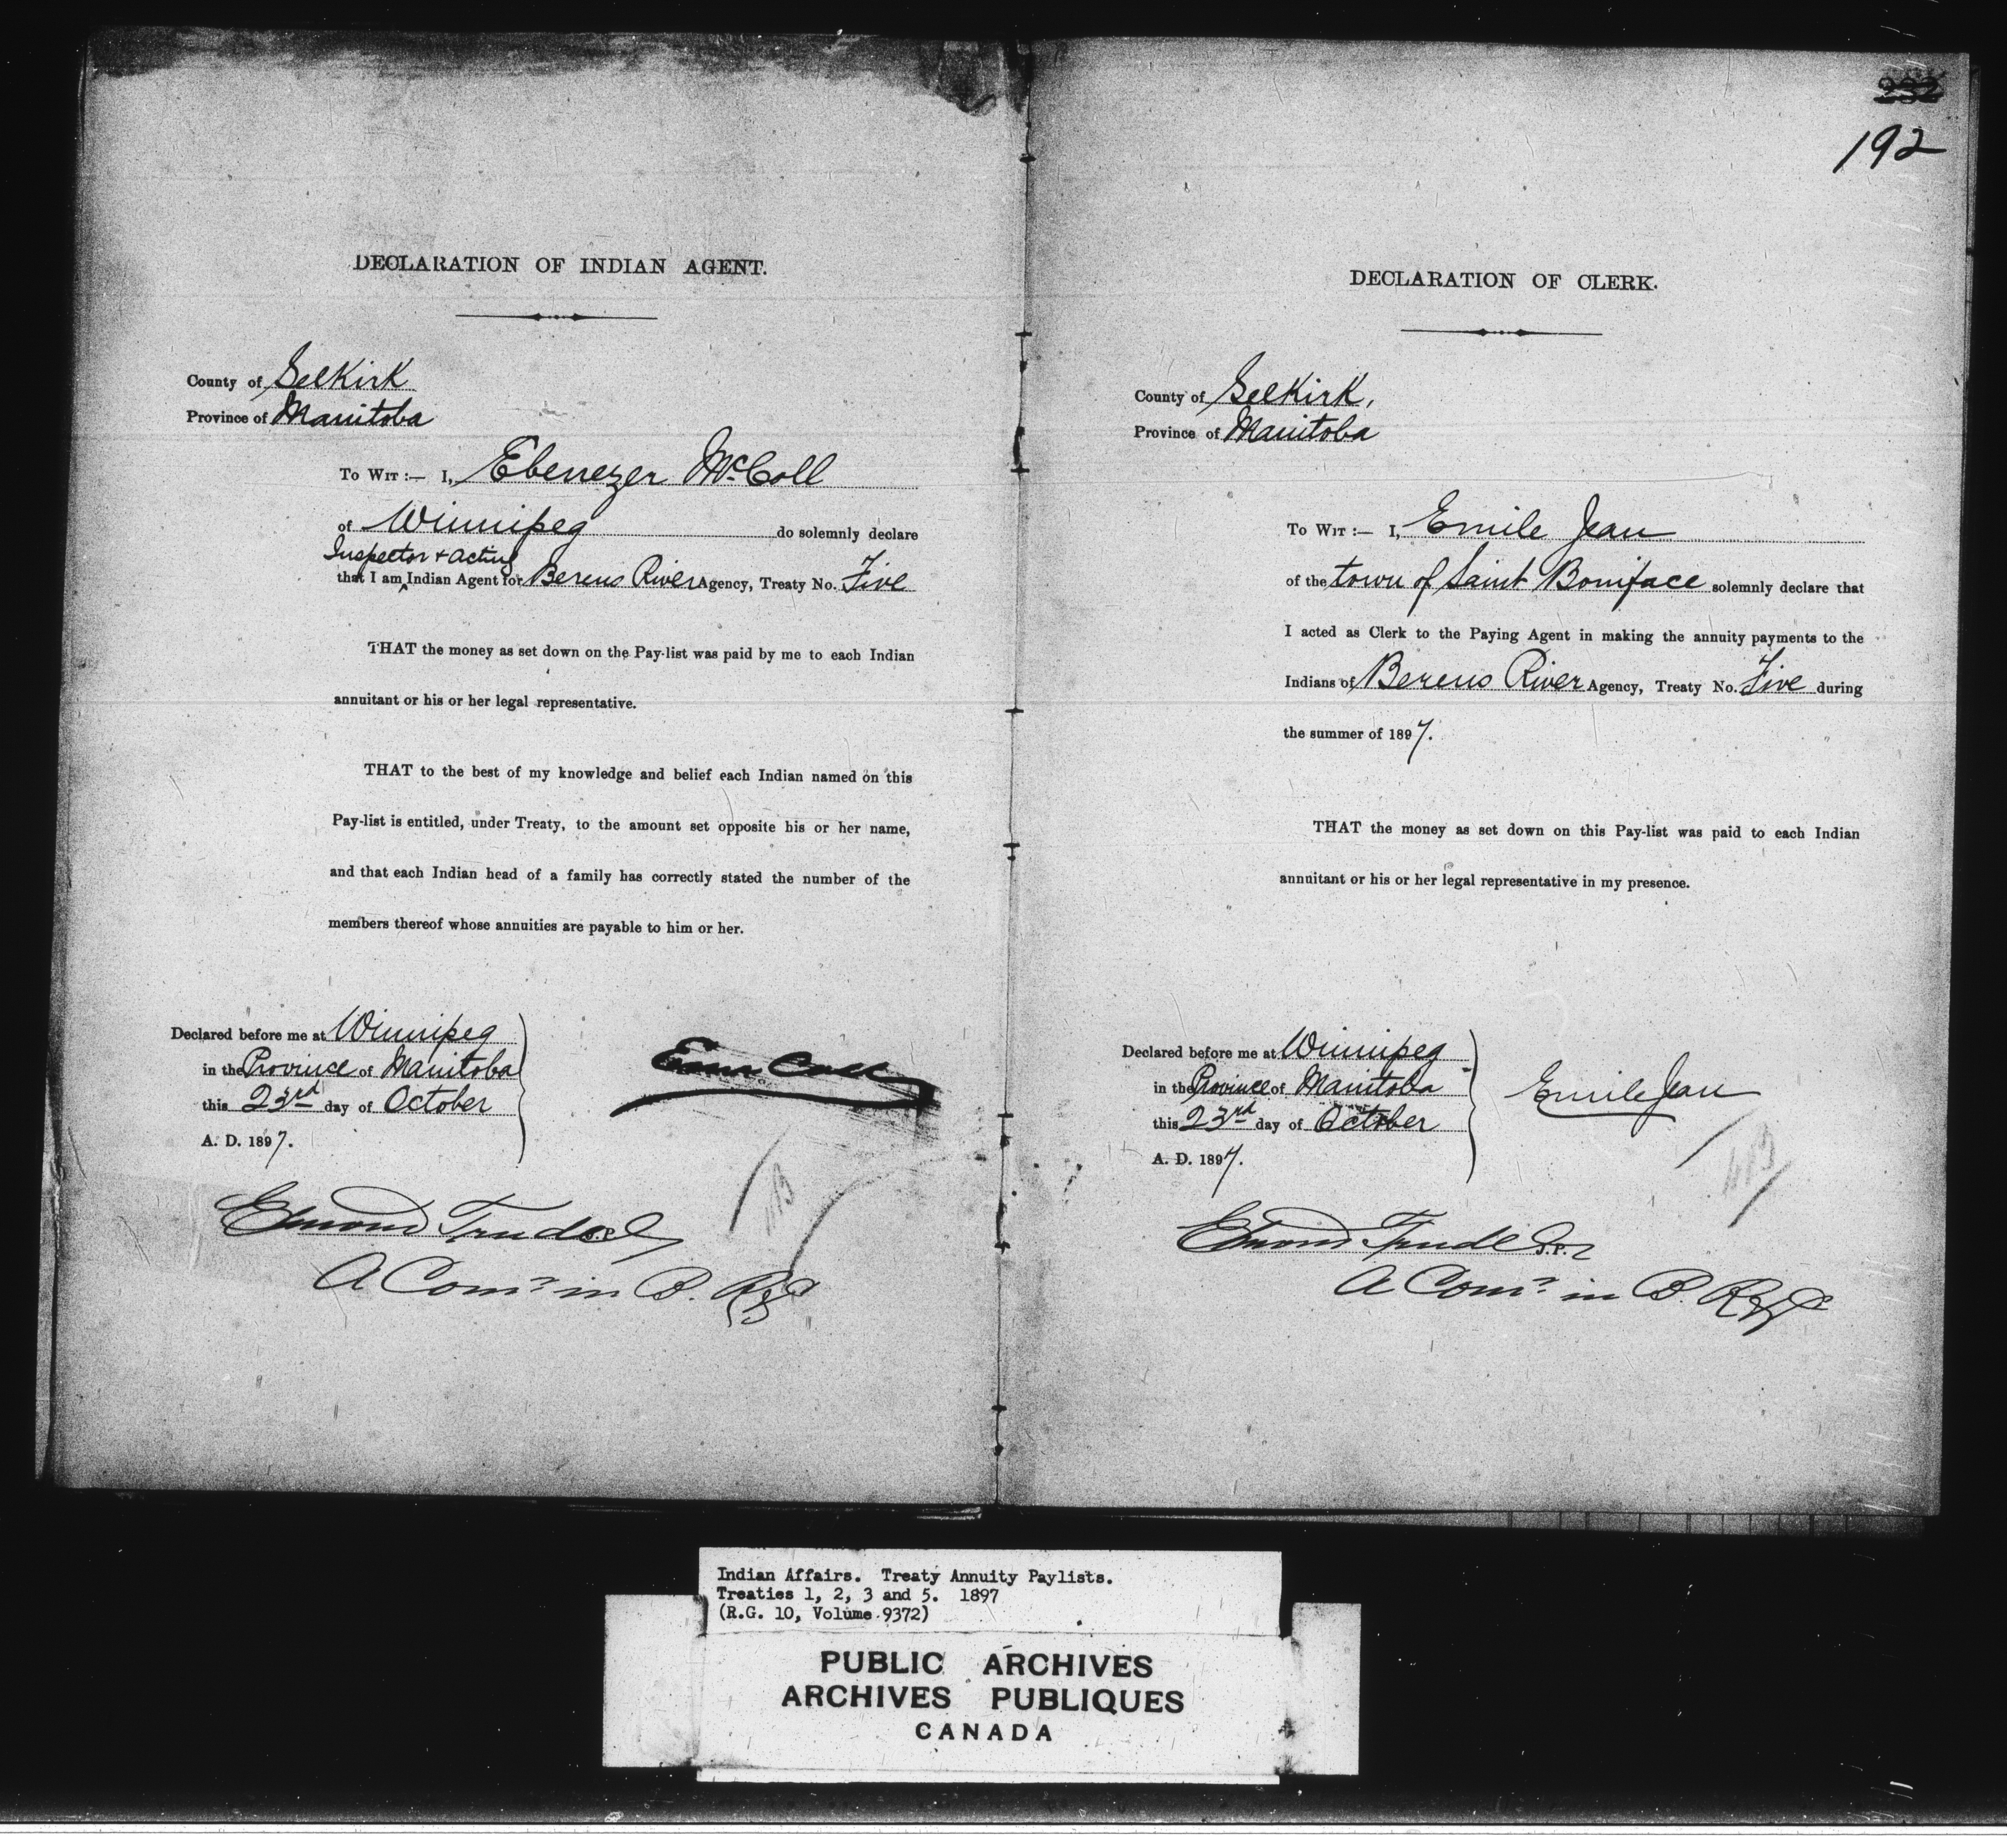 DECLARATION OF INDIAN AGENT.
County of Selkirk
Province of Manitoba
To Wit :— I, Ebenezer McColl
of Winnipeg do solemnly declare
Inspector & Acting
that I am ^ Indian Agent for Berens River Agency, Treaty No. Five
THAT the money as set down on the Pay-list was paid by me to each Indian
annuitant or his or her legal representative.
THAT to the best of my knowledge and belief each Indian named on this
Pay-list is entitled, under Treaty, to the amount set opposite his or her name,
and that each Indian head of a family has correctly stated the number of the
members thereof whose annuities are payable to him or her.
Declared before me at Winnipeg
in the Province of Manitoba
this 23rd day of October
A. D. 1897.
Edmond Trudel
A Comr in B. R.
192
DECLARATION OF CLERK.
County of Selkirk,
Province of Manitoba
To Wit :— I, Emile Jean
of the town of Saint Boniface solemnly declare that
I acted as Clerk to the Paying Agent in making the annuity payments to the
Indians of Berens River Agency, Treaty No. Five during
the summer of 1897.
THAT the money as set down on this Pay-list was paid to each Indian
annuitant or his or her legal representative in my presence.
Declared before me at Winnipeg
in the Province of Manitoba
this 23rd day of October
A. D. 1897.
Emile Jean
Edmond Trudel J.P.
A Comr. in B. R.
Indian Affairs. Treaty Annuity Paylists.
Treaties 1, 2, 3 and 5. 1897
(R.G. 10, Volume 9372)
PUBLIC ARCHIVES
ARCHIVES PUBLIQUES
CANADA